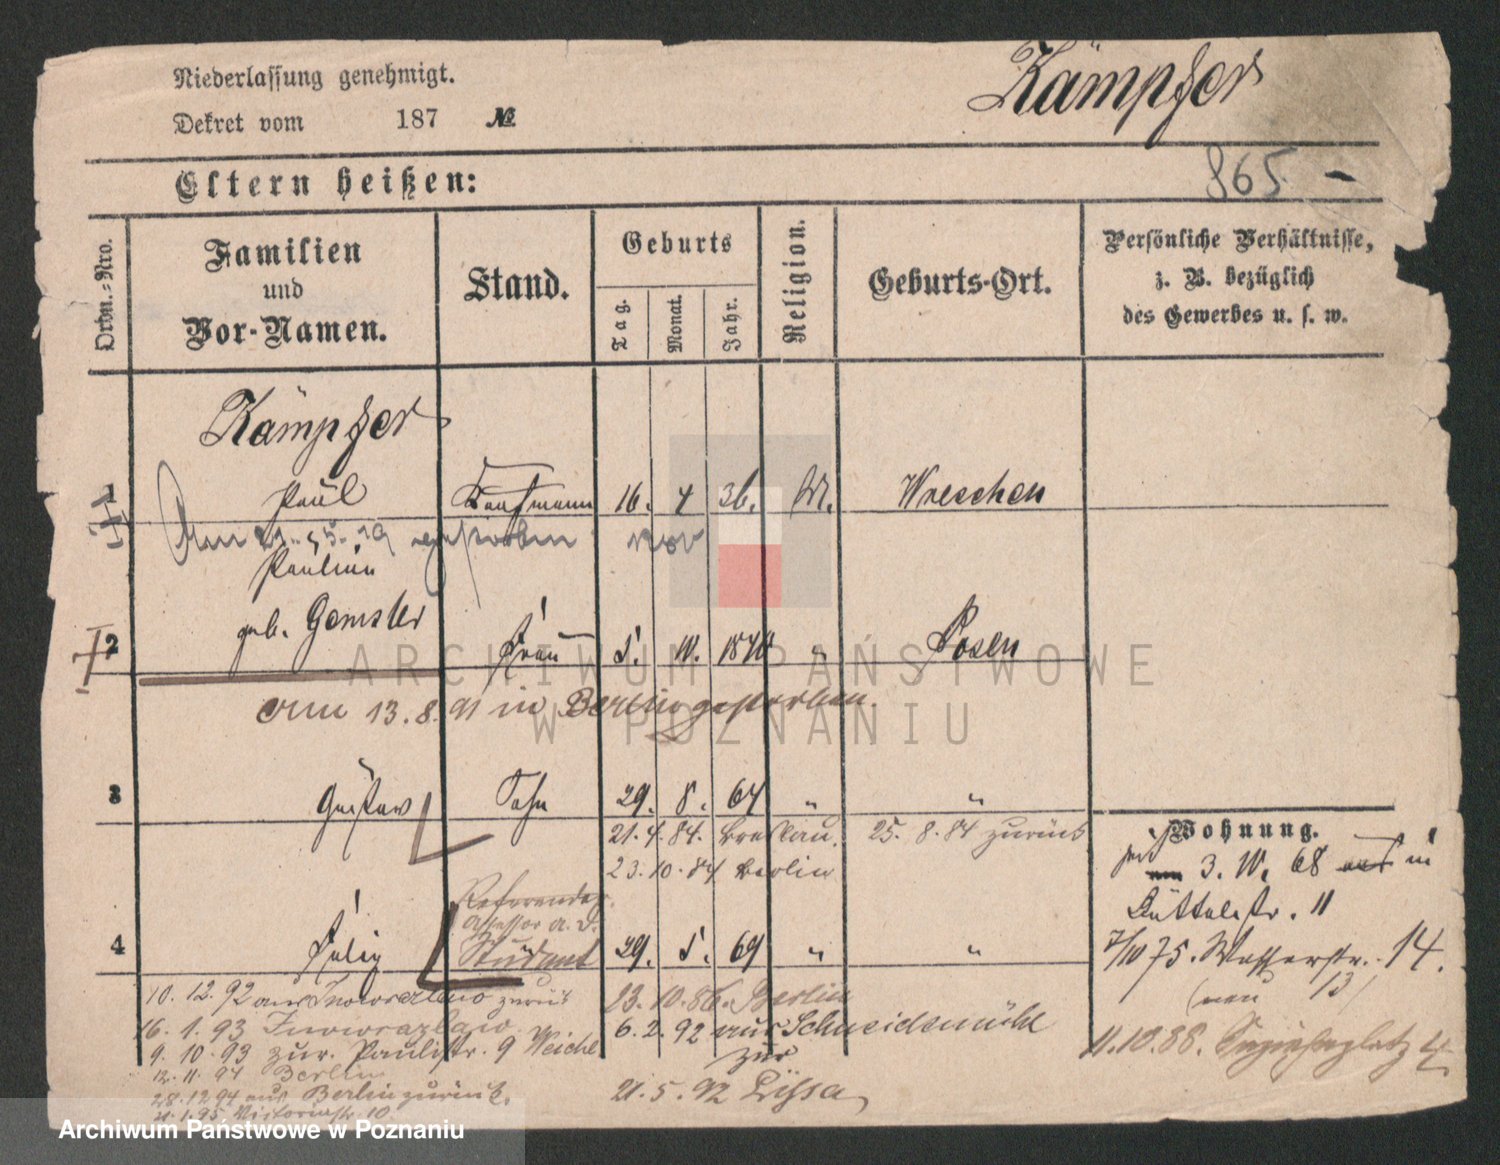 Niederlassung genehmigt.
Kämpfer
Dekret vom 187 №
865 -
Eltern heißen:
Ordn.-Nro.
Familien
und
Vor-Namen.
Stand.
Geburts
Tag.
Monat.
Jahr.
Religion.
Geburts-Ort.
Persönliche Verhältnisse,
z. B. bezüglich
des Gewerbes u. s. w.
Kämpfer
1 Paul Kaufmann 16. 4 36. M. Wreschen
Am 5. 19
Pauline
geb.
2 Frau 10. 1840 " Posen
am 13. 8. 91 in Berlin gestorben.
3 Gustav Sohn 29. 8. 64 " "
21. 4. 84. Breslau. 25. 8. 84 zurück
23. 10. 84 Berlin
Wohnung.
3. 68 in
Büttelstr. 11
Referendar
Assessor a. D.
4 Felix Student 29. 69 " "
7/10 75. Wasserstr. 14.
(neu 13)
10. 12. 92 aus Inowrazlaw zurück
23. 10. 86. Berlin
16. 1. 93 Inowrazlaw
6. 2. 92 aus Schneidemühl
zur
9. 10. 93 zur. Paulistr. 9
11. 10. 88. 4
12. 11. 94 Berlin
28. 12 94 aus Berlin zurück.
21. 5. 92 Lissa
21. 1. 95. Victoriastr. 10
ARCHIWUM PAŃSTWOWE
W POZNANIU
Archiwum Państwowe w Poznaniu